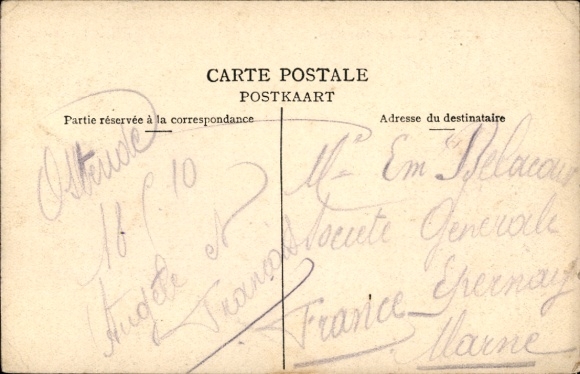 CARTE POSTALE
POSTKAART
Partie réservée à la correspondance
Adresse du destinataire
Ostende
18
10
Angèle et
François
Em Delacour
Société Generale
Epernay
France Marne